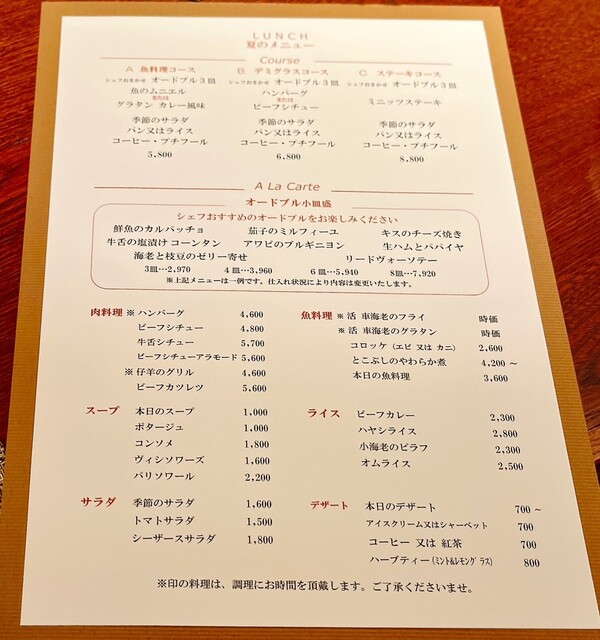 LUNCH
夏のメニュー
Course
A 魚料理コース
シェフおまかせ オードブル3皿
魚のムニエル
または
グラタン カレー風味
季節のサラダ
パン又はライス
コーヒー・プチフール
5,800
B デミグラスコース
シェフおまかせ オードブル3皿
ハンバーグ
または
ビーフシチュー
季節のサラダ
パン又はライス
コーヒー・プチフール
6,800
C ステーキコース
シェフおまかせ オードブル3皿
ミニッツステーキ
季節のサラダ
パン又はライス
コーヒー・プチフール
8,800
A La Carte
オードブル小皿盛
シェフおすすめのオードブルをお楽しみください
鮮魚のカルパッチョ 茄子のミルフィーユ キスのチーズ焼き
牛舌の塩漬け コーンタン アワビのブルギニヨン 生ハムとパパイヤ
海老と枝豆のゼリー寄せ リードヴォーソテー
3皿…2,970 4皿…3,960 6皿…5,940 8皿…7,920
※上記メニューは一例です。仕入れ状況により内容は変更いたします。
肉料理 ※ハンバーグ 4,600
ビーフシチュー 4,800
牛舌シチュー 5,700
ビーフシチューアラモード 5,600
※仔羊のグリル 4,600
ビーフカツレツ 5,600
魚料理 ※活 車海老のフライ 時価
※活 車海老のグラタン 時価
コロッケ (エビ 又は カニ) 2,600
とこぶしのやわらか煮 4,200 ~
本日の魚料理 3,600
スープ 本日のスープ 1,000
ポタージュ 1,000
コンソメ 1,800
ヴィシソワーズ 1,600
パリソワール 2,200
ライス ビーフカレー 2,300
ハヤシライス 2,800
小海老のピラフ 2,300
オムライス 2,500
サラダ 季節のサラダ 1,600
トマトサラダ 1,500
シーザースサラダ 1,800
デザート 本日のデザート 700 ~
アイスクリーム又はシャーベット 700
コーヒー 又は 紅茶 700
ハーブティー(ミント&レモングラス) 800
※印の料理は、調理にお時間を頂戴します。ご了承くださいませ。